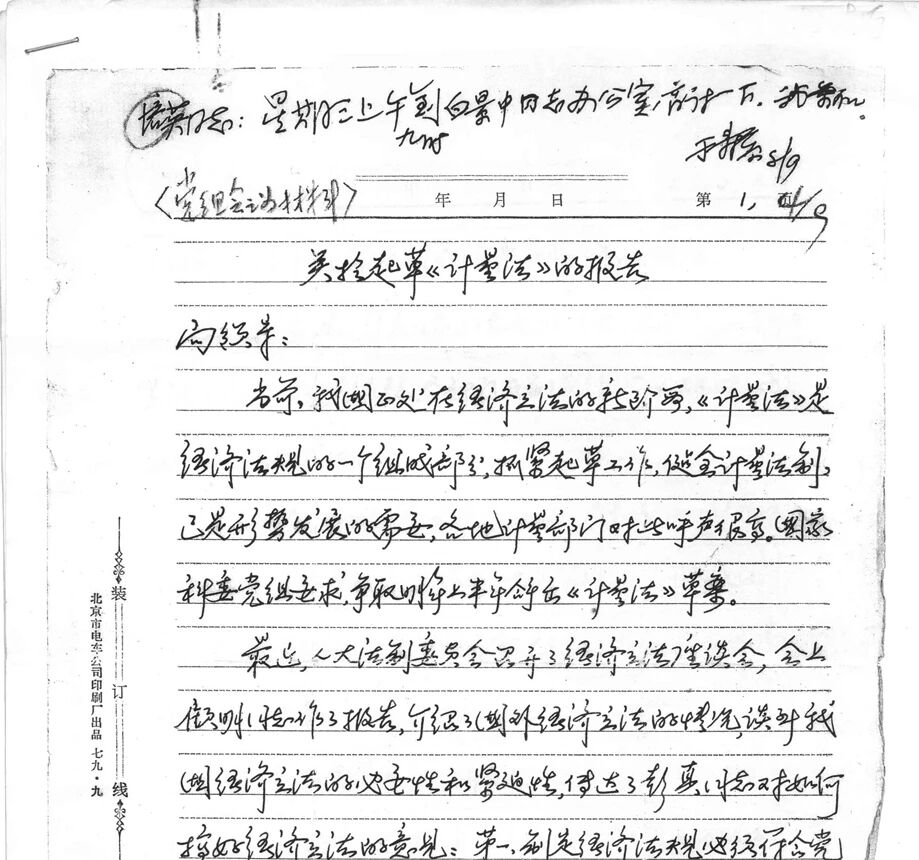 培英同志：星期三上午到白景中同志办公室商讨一下。
九时
〈党组会议材料〉
年 月 日 第 1 页
关于起草《计量法》的报告
局领导：
当前，我国正处在经济立法的新阶段，《计量法》是
经济法规的一个组成部分，抓紧起草工作，健全计量法制，
已是形势发展的需要，各地计量部门对此呼声很高。国家
科委党组要求，争取明年上半年拿出《计量法》草案。
最近，人大法制委员会召开了经济立法座谈会，会上
顾明同志作了报告，介绍了国外经济立法的情况，谈到我
国经济立法的必要性和紧迫性，传达了彭真同志对如何
搞好经济立法的意见：第一，制定经济法规必须符合党
装订线
北京市电车公司印刷厂出品 七九·九